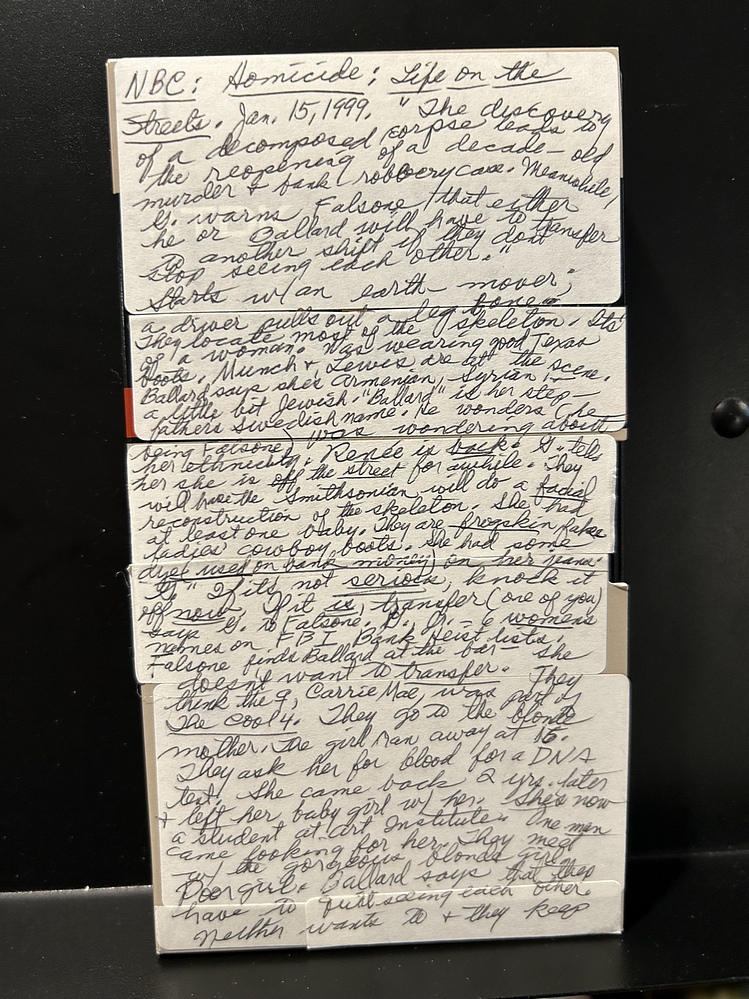 NBC: Homicide: Life on the
Streets. Jan. 15, 1999. "The discovery
of a decomposed corpse leads to
the reopening of a decade-old
murder + bank robbery case. Meanwhile,
G. warns Falsone that either
he or Ballard will have to transfer
to another shift if they don't
stop seeing each other."
Starts w/ an earth-mover;
a driver pulls out a leg bone.
They locate most of the skeleton. Its'
of a woman. Was wearing good Texas
boots. Munch + Lewis are at the scene.
Ballard says she's Armenian, Syrian,
a little bit Jewish. "Ballard" is her step-
fathers Swedish name. He wonders (he
being Falsone) was wondering about
her ethnicity. Renée is back. G. tells
her she is off the street for awhile. They
will have the Smithsonian will do a facial
reconstruction of the skeleton. She had
at least one baby. They are frogskin fake
ladies cowboy boots. She had some
dye used on bank money on her jeans.
G. "If it's not serious, knock it
off now. If it is, transfer (one of you)
says G. to Falsone. 6 womens
names on FBI Bank Heist lists.
Falsone finds Ballard at the bar - she
doesn't want to transfer. They
think the 9, Carrie Mae, was part of
The Cool 4. They go to the blonde
mother. The girl ran away at 16.
They ask her for blood for a DNA
test. She came back 2 yrs. later
+ left her baby girl w/ her. She's now
a student at Art Institute. One man
came looking for her. They meet
w/ the gorgeous blonde girl.
Poor girl. Ballard says that they
have to quit seeing each other.
Neither wants to + they keep